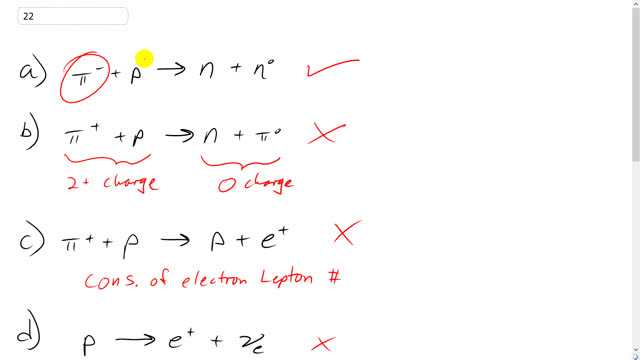 22
a) π⁻ + p → n + η⁰ ✓
b) π⁺ + p → n + π⁰ ✗
2+ charge 0 charge
c) π⁺ + p → p + e⁺ ✗
Cons. of electron Lepton #
d) p → e⁺ + νₑ ✗